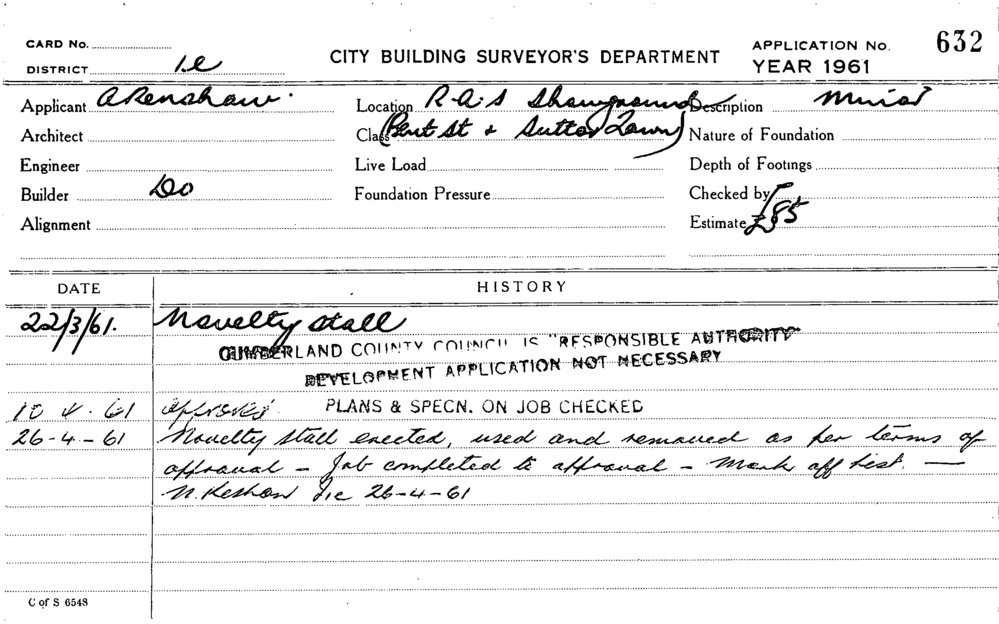 CARD No. CITY BUILDING SURVEYOR'S DEPARTMENT APPLICATION No. 632
DISTRICT 1e YEAR 1961
Applicant A Renshaw. Location R.A.S Showground Description Minor
Architect Class (Bent St & Sutton Lawn) Nature of Foundation
Engineer Live Load Depth of Footings
Builder Do Foundation Pressure Checked by
Alignment Estimate £85
DATE HISTORY
22/3/61. Novelty stall
CUMBERLAND COUNTY COUNCIL IS "RESPONSIBLE AUTHORITY"
DEVELOPMENT APPLICATION NOT NECESSARY
10 4. 61 approved PLANS & SPECN. ON JOB CHECKED
26-4-61 Novelty stall erected, used and removed as per terms of
approval - Job completed to approval - Mark off list. —
N. 26-4-61
C of S 6548